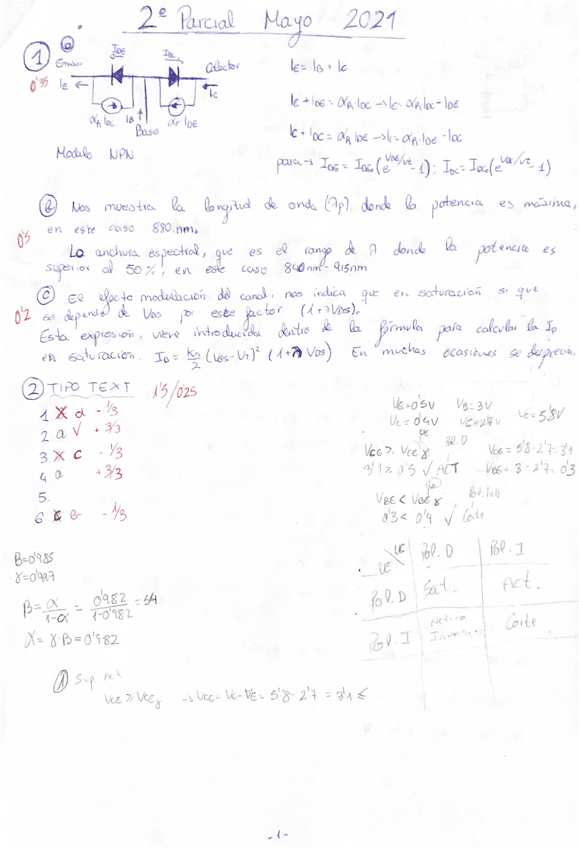 2º Parcial Mayo 2021
1 a
Emisor IDE IDC Colector
0'35 IE IC
αR IDC IB αF IDE
Base
Modelo NPN
IE = IB + IC
IE + IDE = αR IDC → IE = αR IDC - IDE
IC + IDC = αR IDE → IC = αR IDE - IDC
para → IDE = IDEo (e^VBE/Vt - 1) ; IDC = IDCo (e^VBC/Vt - 1)
b Nos muestra la longitud de onda (λp) donde la potencia es máxima,
en este caso 880 nm.
0'5
La anchura espectral, que es el rango de λ donde la potencia es
superior al 50%, en este caso 840nm - 915nm
c El efecto modulación del canal, nos indica que en saturación si que
0'2 se depende de VDS por este factor (1+λVDS).
Esta expresión, viene introducida dentro de la fórmula para calcular la ID
en saturación. ID = Kn/2 (VGS - VT)² (1+λ VDS). En muchas ocasiones se desprecia.
2 TIPO TEXT 1'5/0'25
1 d - 1/3
2 a √ + 3/3
3. c - 1/3
4 a + 3/3
5.
6 b - 1/3
VB = 3V
VC = 5'8V
VCE ≥ VCEγ Pol. D VCE = 5'8 - 2'7 = 3'1
3'1 ≥ 0'5 √ ACT VBE = 3 - 2'7 = 0'3
VBE < VBEγ
0'3 < 0'4 √ Corte
UC Pol. D Pol. I
UE
Pol. D Sat. Act.
Pol. I Activa Inversa Corte
B = 0'985
γ = 0'997
B = α/1-α = 0'982/1-0'982 = 54
α = γ·B = 0'982
1 Sup Act
VCE ≥ VCEγ → VCE = VC - VE = 5'8 - 2'7 = 3'1 ≤
- 1 -